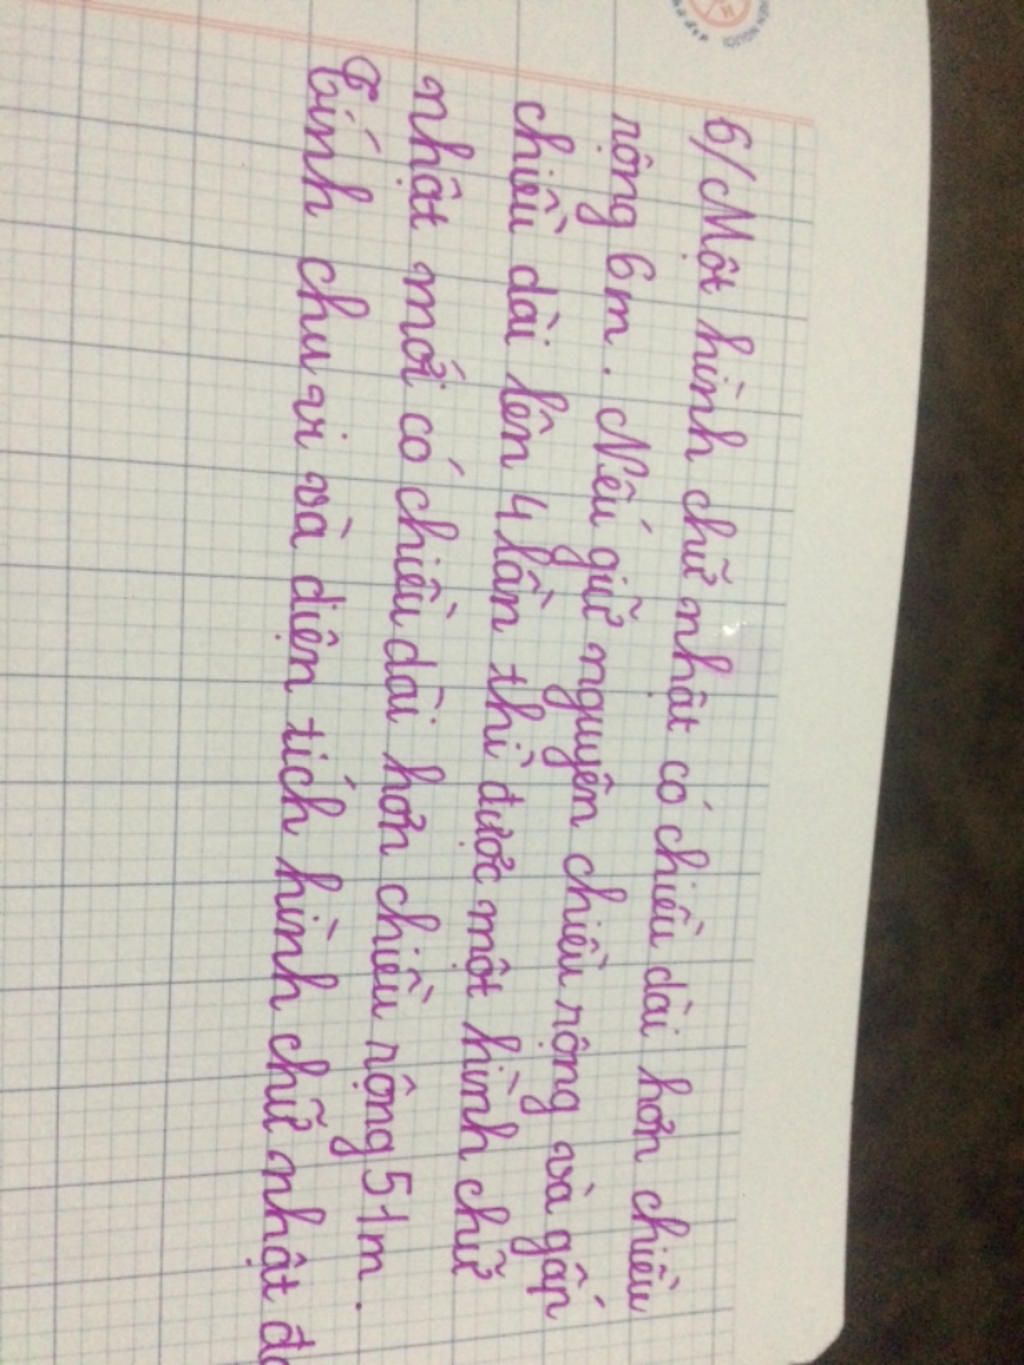 6/ Một hình chữ nhật có chiều dài hơn chiều
rộng 6m. Nếu giữ nguyên chiều rộng và gấp
chiều dài lên 4 lần thì được một hình chữ
nhật mới có chiều dài hơn chiều rộng 51m.
Tính chu vi và diện tích hình chữ nhật